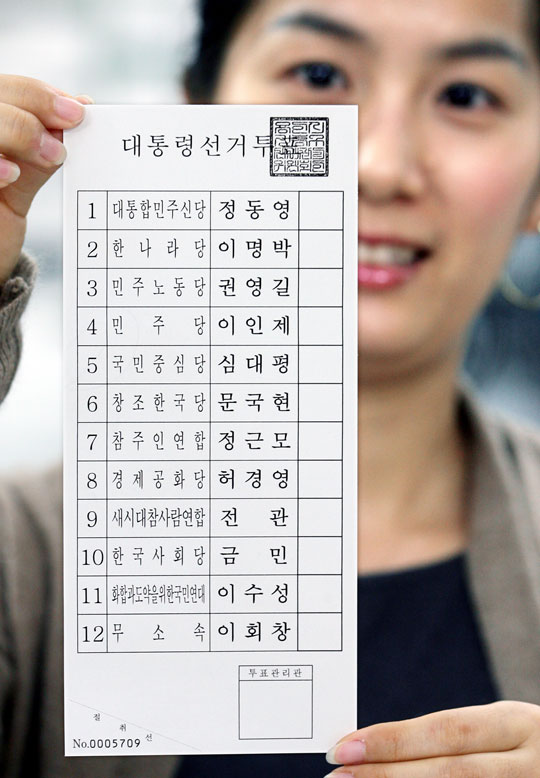 대통령선거투표
1 대통합민주신당 정동영
2 한나라당 이명박
3 민주노동당 권영길
4 민주당 이인제
5 국민중심당 심대평
6 창조한국당 문국현
7 참주인연합 정근모
8 경제공화당 허경영
9 새시대참사람연합 전관
10 한국사회당 금민
11 화합과도약을위한국민연대 이수성
12 무소속 이회창
투표관리관
절취선
No.0005709